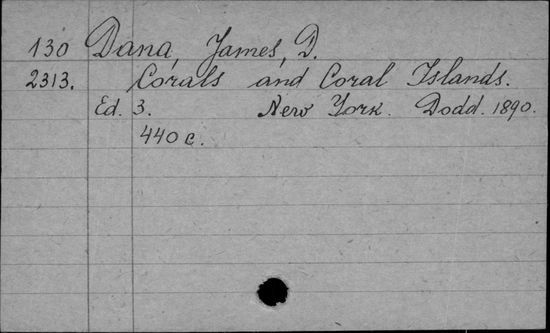 130 Dana, James, D.
2313. Corals and Coral Islands.
Ed. 3. New York. Dodd. 1890.
440 c.